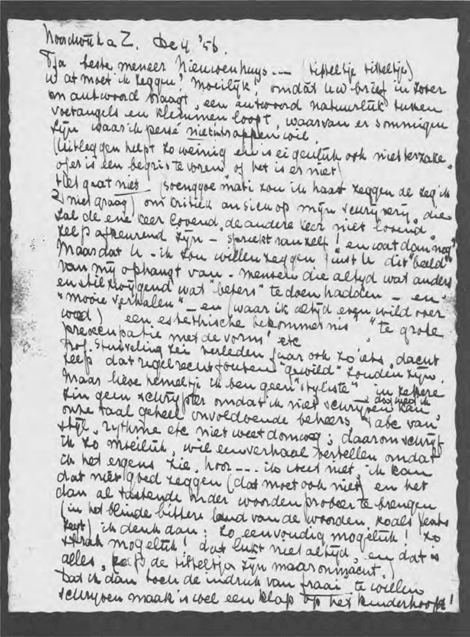 Noordwijk a Z. Dec 4. '56.
Tja beste meneer Nieuwenhuys --- (titteltje titteltje)
wat moet ik zeggen! Moeilijk! omdat uw brief in zover
om antwoord vraagt, een antwoord natuurlijk tussen
voetangels en klemmen loopt, waarvan er sommigen
zijn waar ik persé niet in trappen wil.
(Uitleggen helpt zo weinig en is eigenlijk ook niet ter zake.
of er is een begrip te voren, of het is er niet)
Het gaat niet (soenggoe mati zou ik haast zeggen
niet graag) om critiek an sich op mijn schrijverij, die
zal de ene keer lovend, de andere keer niet lovend,
zelfs afkeurend zijn – spreekt vanzelf! en wat dan nog?
Maar dat u – ik zou willen zeggen juist u dit "beeld"
van mij ophangt van – mensen die altijd wat anders
en stilzwijgend wat "beters" te doen hadden – en
"mooie verhalen" – en (waar ik altijd even wild over
word) een "esthethische bekommernis" "te grote
preoccupatie met de vorm" etc
Prof. Stuiveling zei verleden jaar ook zo iets, dacht
zelfs dat regelrechte fouten "gewild" zouden zijn.
Maar lieve hemeltje ik ben geen "styliste" in zekere
zin geen schrijfster omdat ik niet schrijven kan,
onze taal geheel onvoldoende beheers, 't abc van
stijl, rythme etc niet weet; daarom schrijf
ik zo moeilijk, wil een verhaal vertellen omdat
ik het ergens zie, hoor --- ik weet niet, ik kan
dat niet goed zeggen (dat moet ook niet) en het
dan al tastende onder woorden probeer te brengen
(in het blinde bittere land van de woorden, zoals
zegt) ik denk dan: zo eenvoudig mogelijk! zo
strak mogelijk! dat lukt niet altijd, en dat is
alles, zelfs de titteltjes zijn maar onmacht.
Dat ik dan toch de indruk van "fraai" te willen
schrijven maak is wel een klap op het kinderhoofd!